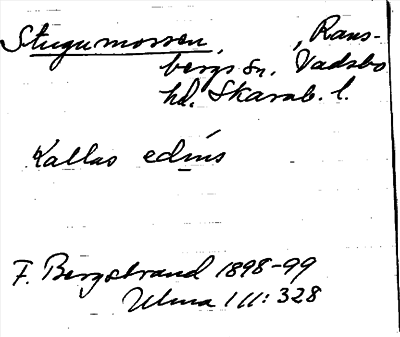 Stugumossen, , Rans-
bergs sn. Vadsbo
hd. Skarab. l.
Kallas
F. Bergstrand 1898-99
Ulma 111: 328